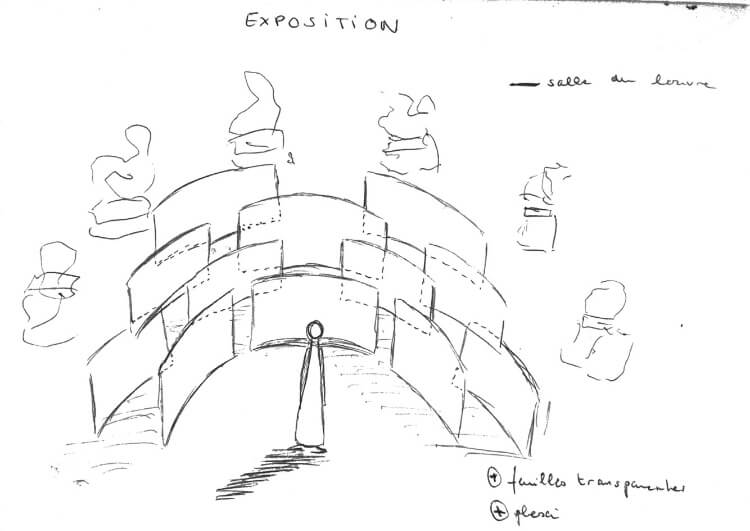 EXPOSITION
— salle du louvre
⊕ feuilles transparentes
⊕ plexi